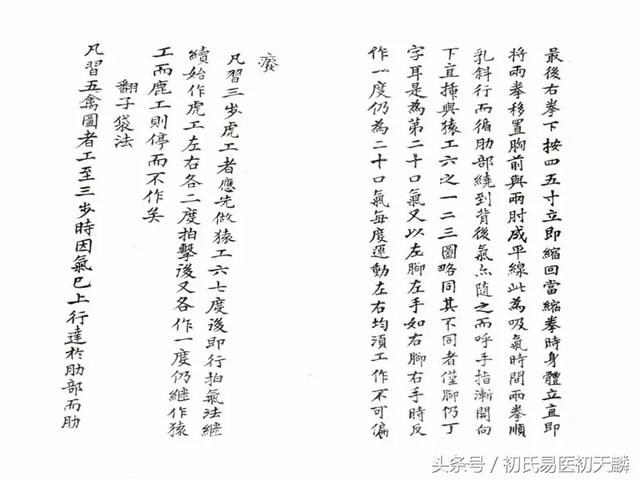 最後右拳下按四五寸立即縮回當縮拳時身體立直即
將兩拳移置胸前與兩肘成平線此為吸氣時間兩拳順
乳斜行而循肋部繞到背後氣亦隨之而呼手指漸開向
下直揷與猿工六之一二三圖略同其不同者僅腳仍丁
字耳是為第二十口氣又以左腳左手如右腳右手時反
作一度仍為二十口氣每度運動左右均須工作不可偏
廢
凡習三步虎工者應先做猿工六七度後即行拍氣法継
續始作虎工左右各二度拍擊後又各作一度仍継作猿
工而鹿工則停而不作矣
翻子袋法
凡習五禽圖者工至三步時因氣已上行達於肋部而肋
头条号/初氏易医初天麟